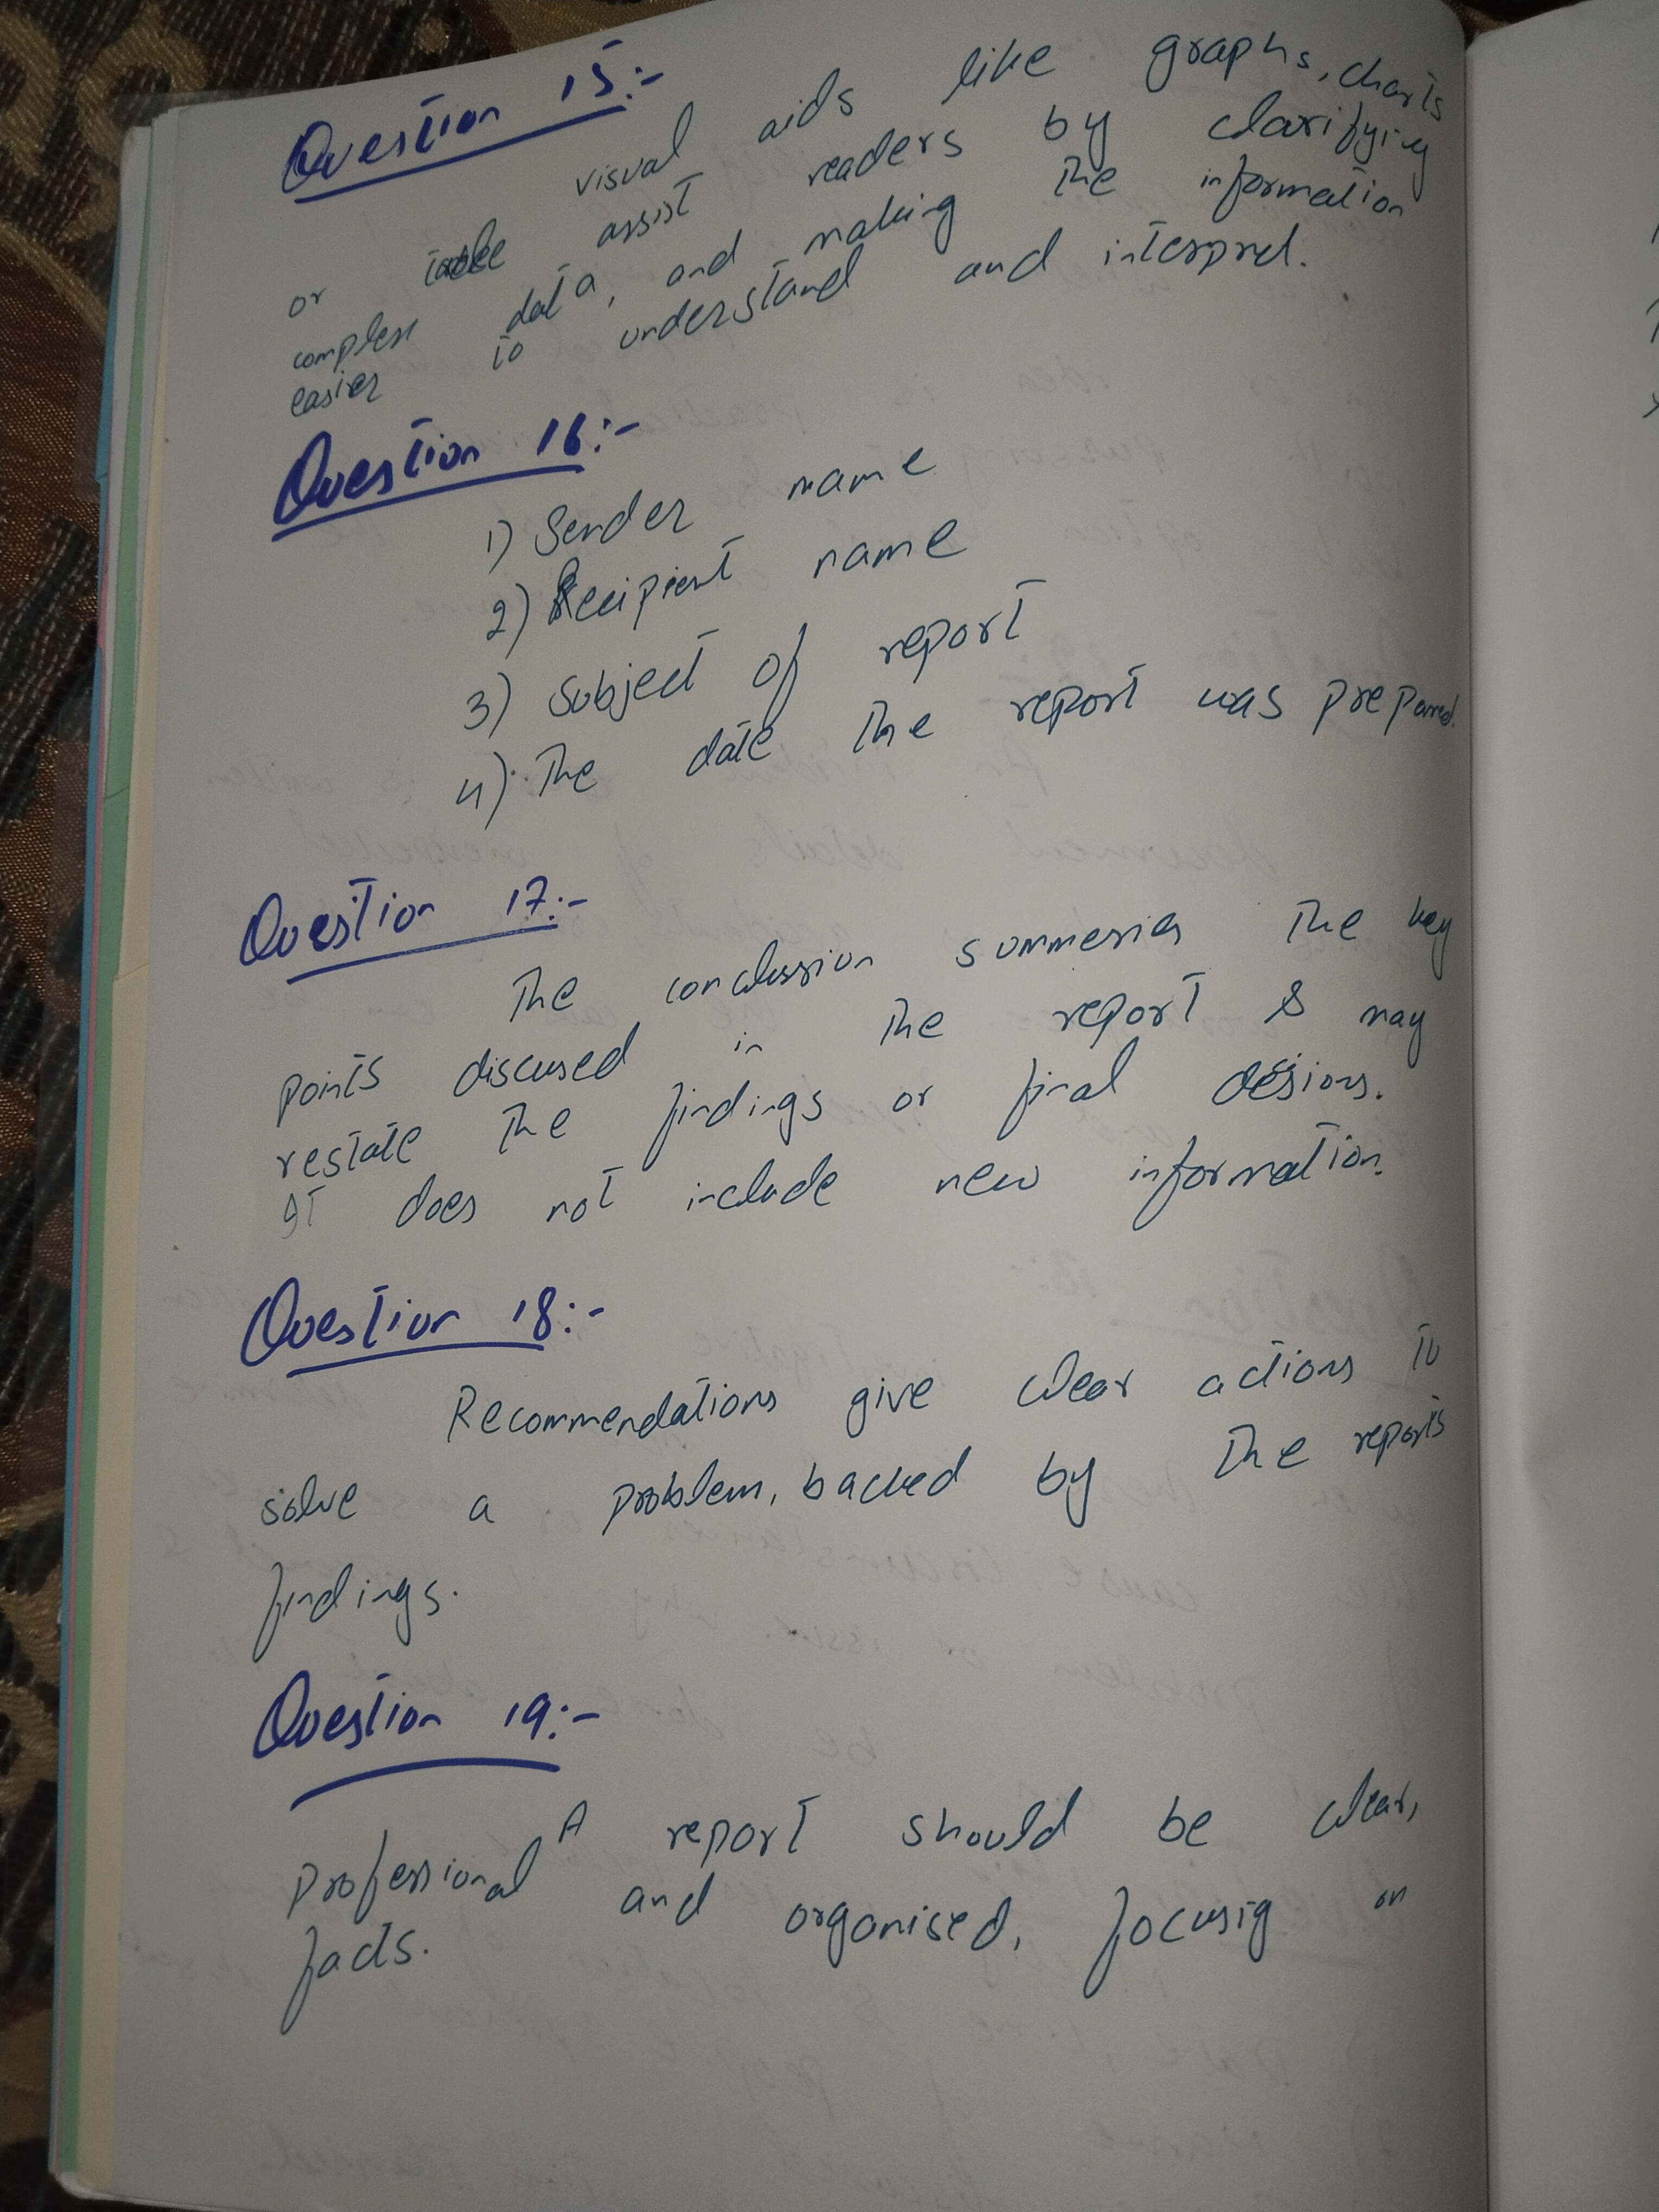 Question 15:-
visual aids like graphs, charts
or table assist readers by clarifying
complex data, and making the information
easier to understand and interpret.
Question 16:-
1) Sender name
2) Recipient name
3) Subject of report
4) The date the report was prepared.
Question 17:-
The conclussion summeries the key
points discused in the report & may
restate the findings or final desions.
It does not include new information.
Question 18:-
Recommendations give clear actions to
solve a problem, backed by the reports
findings.
Question 19:-
A report should be clear,
professional and organised, focusig on
facts.